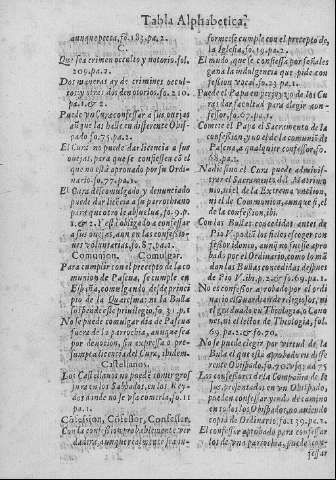 Tabla Alphabetica,
aunque pecca, fo. 183. pa. 2.
C.
Que sea crimen occulto y notorio. fol.
209. pa. 1.
Dos maneras ay de crimines occul-
tos: y otras dos de notorios, fo. 210.
pa. 1. & 2.
Puede vn Cura confessar a sus ouejas
aunque las halle en differente Obis-
pado fo. 73. pa. 2.
El Cura no puede dar licencia a sus
ouejas, pera que se confiessen cõ el
que no està aprouado por su Ordi-
nario, fo. 77. pa. 2.
El Cura descomulgado y denunciado
puede dar licẽcia a su parrochiano
para que otro le absuelua, fo. 9. p.
1. & 2. Y està obligado a confessar
a sus ouejas, aun en las confessio-
nes voluntarias, fo. 87. pa. 1.
Comunion. Comulgar.
Para cumplir con el precepto de la co
munion de Pascua, se cumple en
España, comulgando desde princi
pio de la Quaresma: ni la Bulla
suspende este priuilegio, fo. 31. p. 1
No se puede comulgar dia de Pascua
fuera de la parrochia, aunque sea
por deuocion, sin expressa o pre-
sumpta licencia del Cura, ibidem.
Castellanos.
Los Castellanos no puedẽ comer gros
sura en los Sabbados, en los Rey-
nos donde no se vsa comerla, fo. 11
pa. 1.
Cõfession, Cõfessor, Confessar.
Con la confession probablemente ver
dadera, aunque realmente sea in-
forme se cumple con el precepto de
la Iglesia, fo. 19. pa. 2.
El mudo, que se confiessa por señales
gana la indulgencia que pide con-
fession vocal. fo. 23. pa. 1.
Puede el Papa en perjuyzio de los Cu
ras dar facultad para elegir con-
fessor. fo. 67. pa. 1.
Comete el Papa el Sacramento de la
confession, y no el de la comuniõ de
Pascua, a qualquier confessor, fo.
68. pa. 2.
Nadie sino el Cura puede adminis-
trar el Sacramento del Matrimo-
nio, ni el de la Extrema vnction,
ni el de Communion, aunque si, el
de la confession, ibi.
Con las Bullas concedidas antes de
Pio V. podiã los fieles escoger con-
fessor idoneo, aunq̃ no fuesse apro-
bado por el Ordinario, como lo mã
dan las Bullas concedidas despues
de Pio V. ibi. p. 2. & fo. 69. pa. 1.
No es confessor a robado por el ordi
nario el Guardian de religiosos, ni
el graduado en Theologia, o Cano
nes, ni el lector de Theologia, fol.
69. pa. 2. & fo. 70.
No se puede elegir por virtud de la
Bulla el que està aprobado en diffe
rente Obispado. fo. 70. vsq; ad 75
Los confessores de la Compañia de Ie
sus, presentados en vn Obispado,
pueden confessar yendo de camino
en todos los Obispados, no auiendo
copia de Ordinario, fo. 139. pa. 2.
El confessor aprobado para confessar
los de vna parrochia, puede con-
fessar